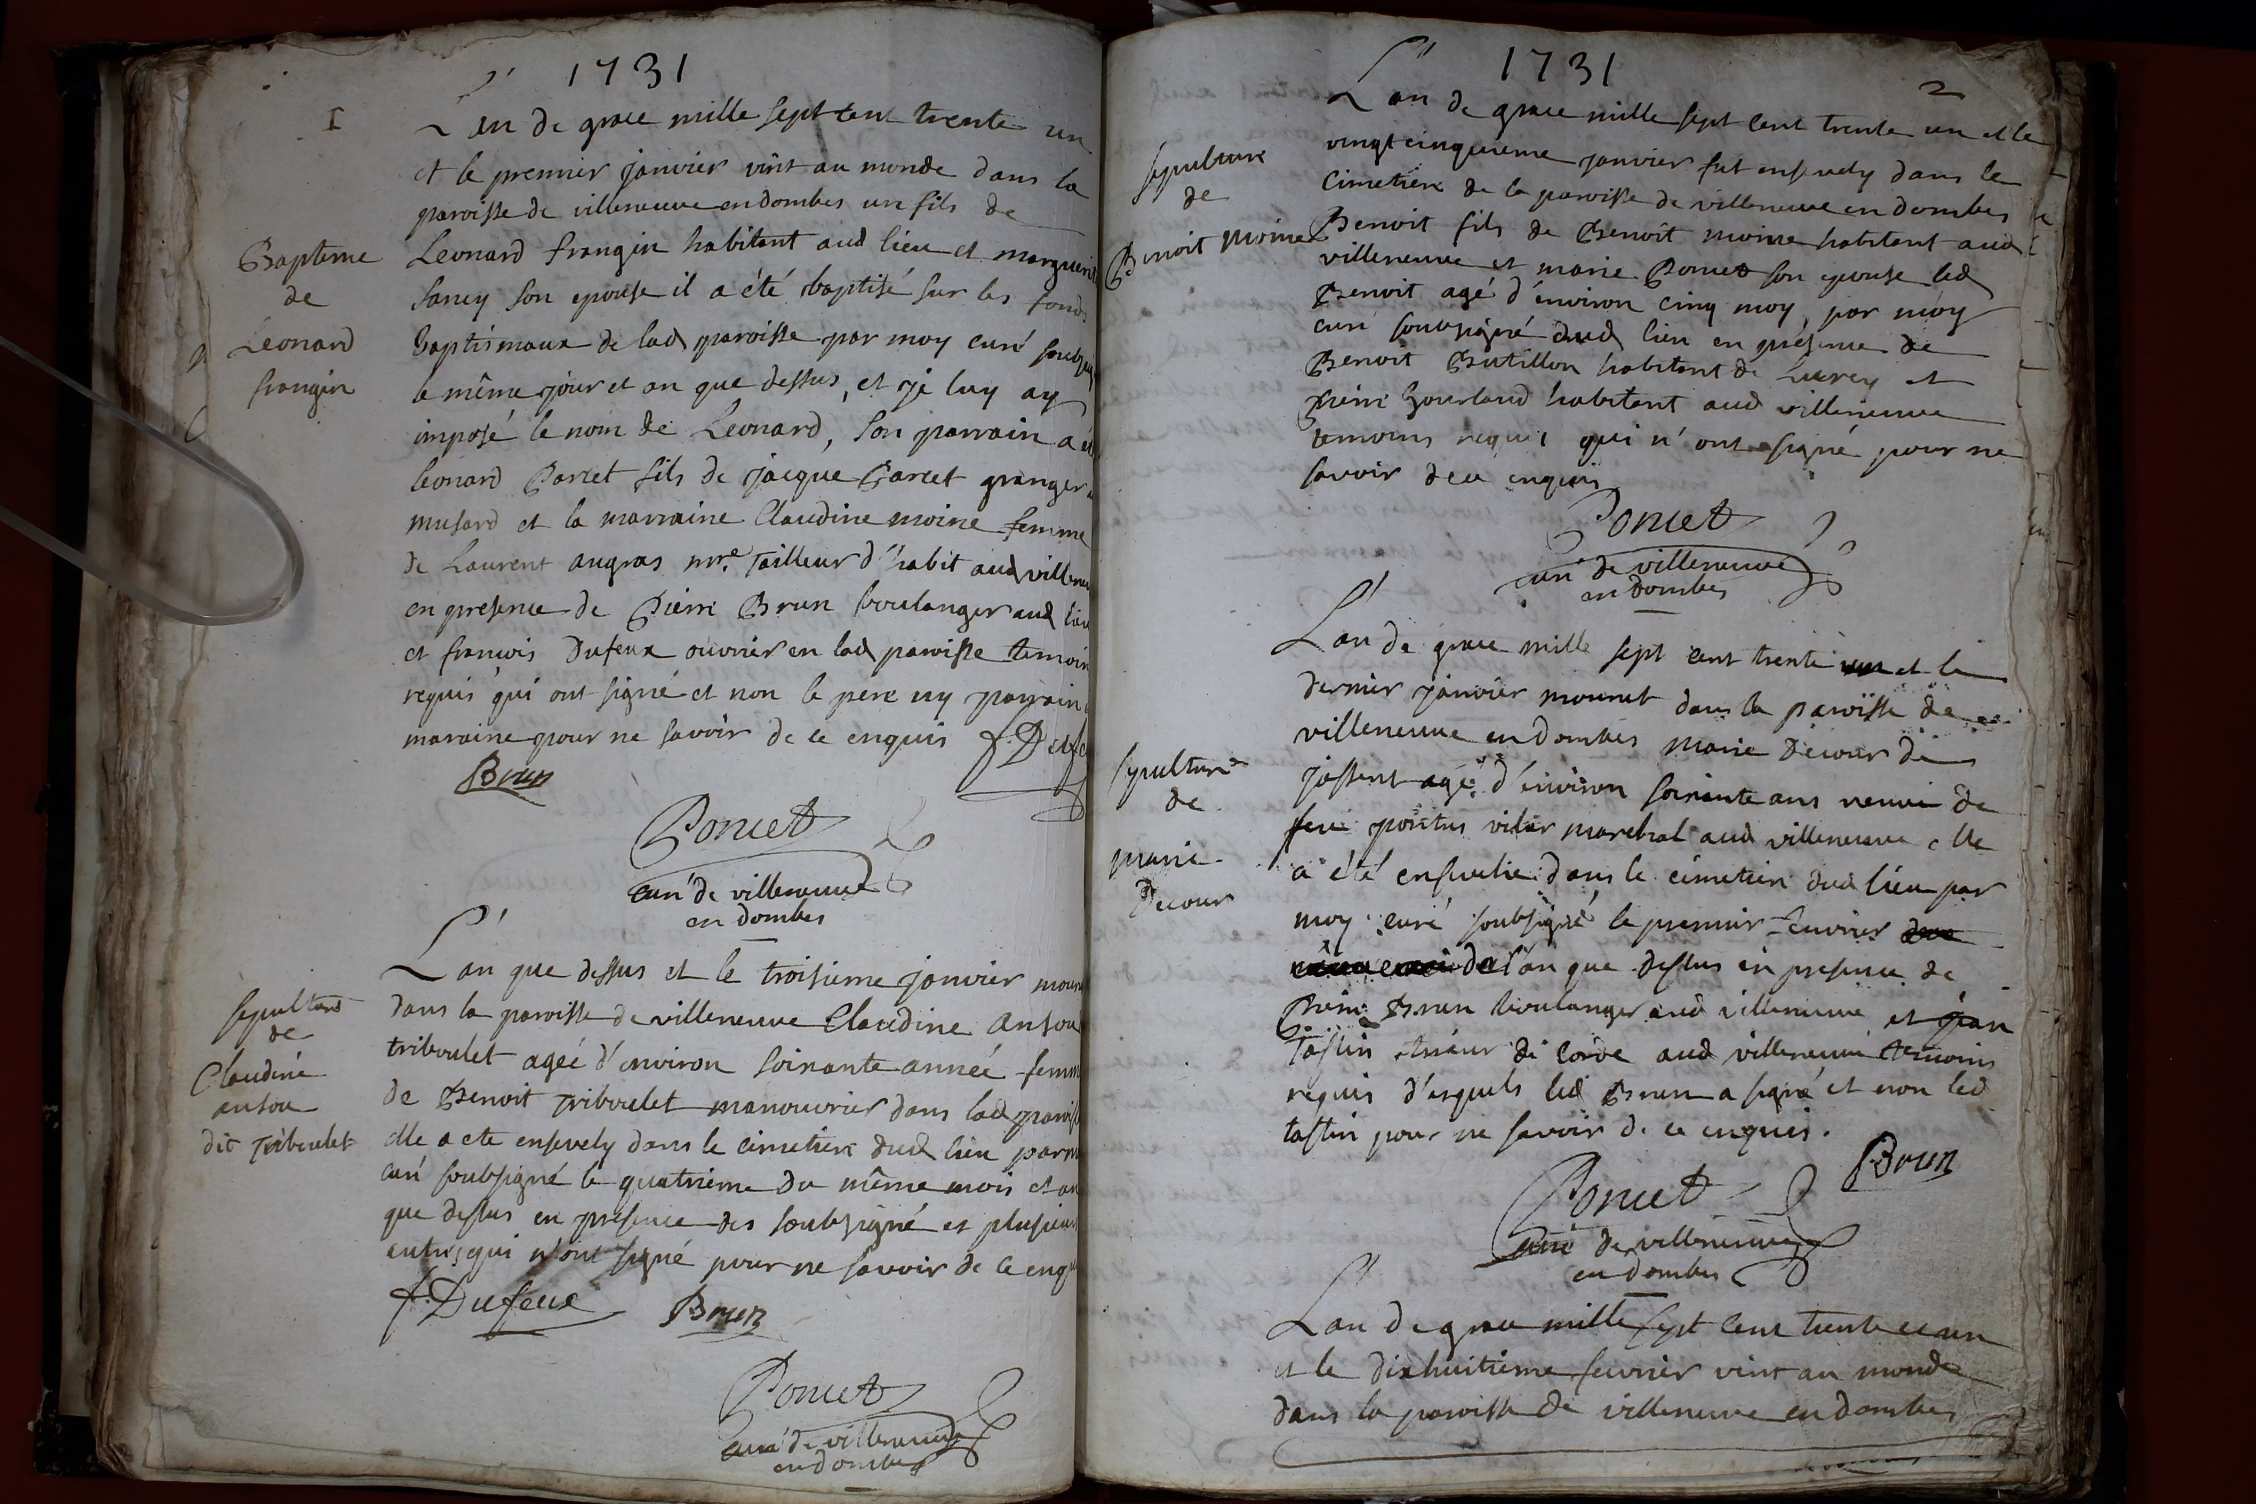 1731
1
L'an de grace mille sept cent trente un
et le premier janvier vint au monde dans la
paroisse de villeneuve en dombes un fils de
Bapteme
de
Leonard
frangin
Leonard frangin habitant aud lieu et marguerit
sancy son epouse il a été baptisé sur les fonds
Baptismaux de lad paroisse par moy curé soubsig
le même jour et an que dessus, et je luy ay
imposé le nom de Leonard, son parrain a ét
leonard Parret fils de jacque Parret granger
musard et la marraine Claudine moine femme
de Laurent augras mre. Tailleur d'habit aud villeneu
en presence de Pierre Brun boulanger aud lieu
et francois Dufeux ouvrier en lad paroisse temoin
requis qui ont signé et non le pere ny parrain
maraine pour ne savoir de ce enquis f. Dufe
Brun
Poncet
curé de villeneuve
en dombes
sepulture
de
Claudine
ansou
dit Triboulet
L'an que dessus et le troisieme janvier mour
dans la paroisse de villeneuve Claudine ansou
triboulet agée d'environ soixante année femm
de Benoit Triboulet manouvrier dans lad paroiss
elle a ete ensevely dans le cimetiere dud lieu par m
curé soubsigné le quatrieme du même mois et an
que dessus en presence des soubsigné et plusieurs
autres qui n'ont signé pour ne savoir de ce enq
f. Dufeux Brun
Poncet
curé de villeneuve
en dombes
1731
2
L'an de grace mille sept cent trente un et le
vingt cinquieme janvier fut ensevely dans le
cimetiere de la paroisse de villeneuve en dombes
sepulture
de
Benoit moine
Benoit fils de Benoit moine habitant aud
villeneuve et marie Poncet son epouse led
Benoit agé d'environ cinq moy, par moy
curé soubsigné dud lieu en presence de
Benoit Butillon habitant de Lurcy et
Pierre habitant aud villeneuve
temoins requis qui n'ont signé pour ne
savoir de ce enquis
Poncet
curé de villeneuve
en dombes
L'an de grace mille sept cent trente un et le
dernier janvier mourut dans la paroisse de
villeneuve en dombes marie Decour de
sepulture
de
marie
Decour
jassent agé d'environ soixante ans veuve de
feu pontus vilar marechal aud villeneuve elle
a été ensevelie dans le cimetiere dud lieu par
moy curé soubsigné le premier fevrier
de l'an que dessus en presence de
Pierre Brun boulanger aud villeneuve et jean
tastin tisseur de corde aud villeneuve temoins
requis d'esquels led Brun a signé et non led
tastin pour ne savoir de ce enquis.
Brun
Poncet
curé de villeneuve
en dombes
L'an de grace mille sept cent trente et un
et le dixhuitieme fevrier vint au monde
dans la paroisse de villeneuve en dombes